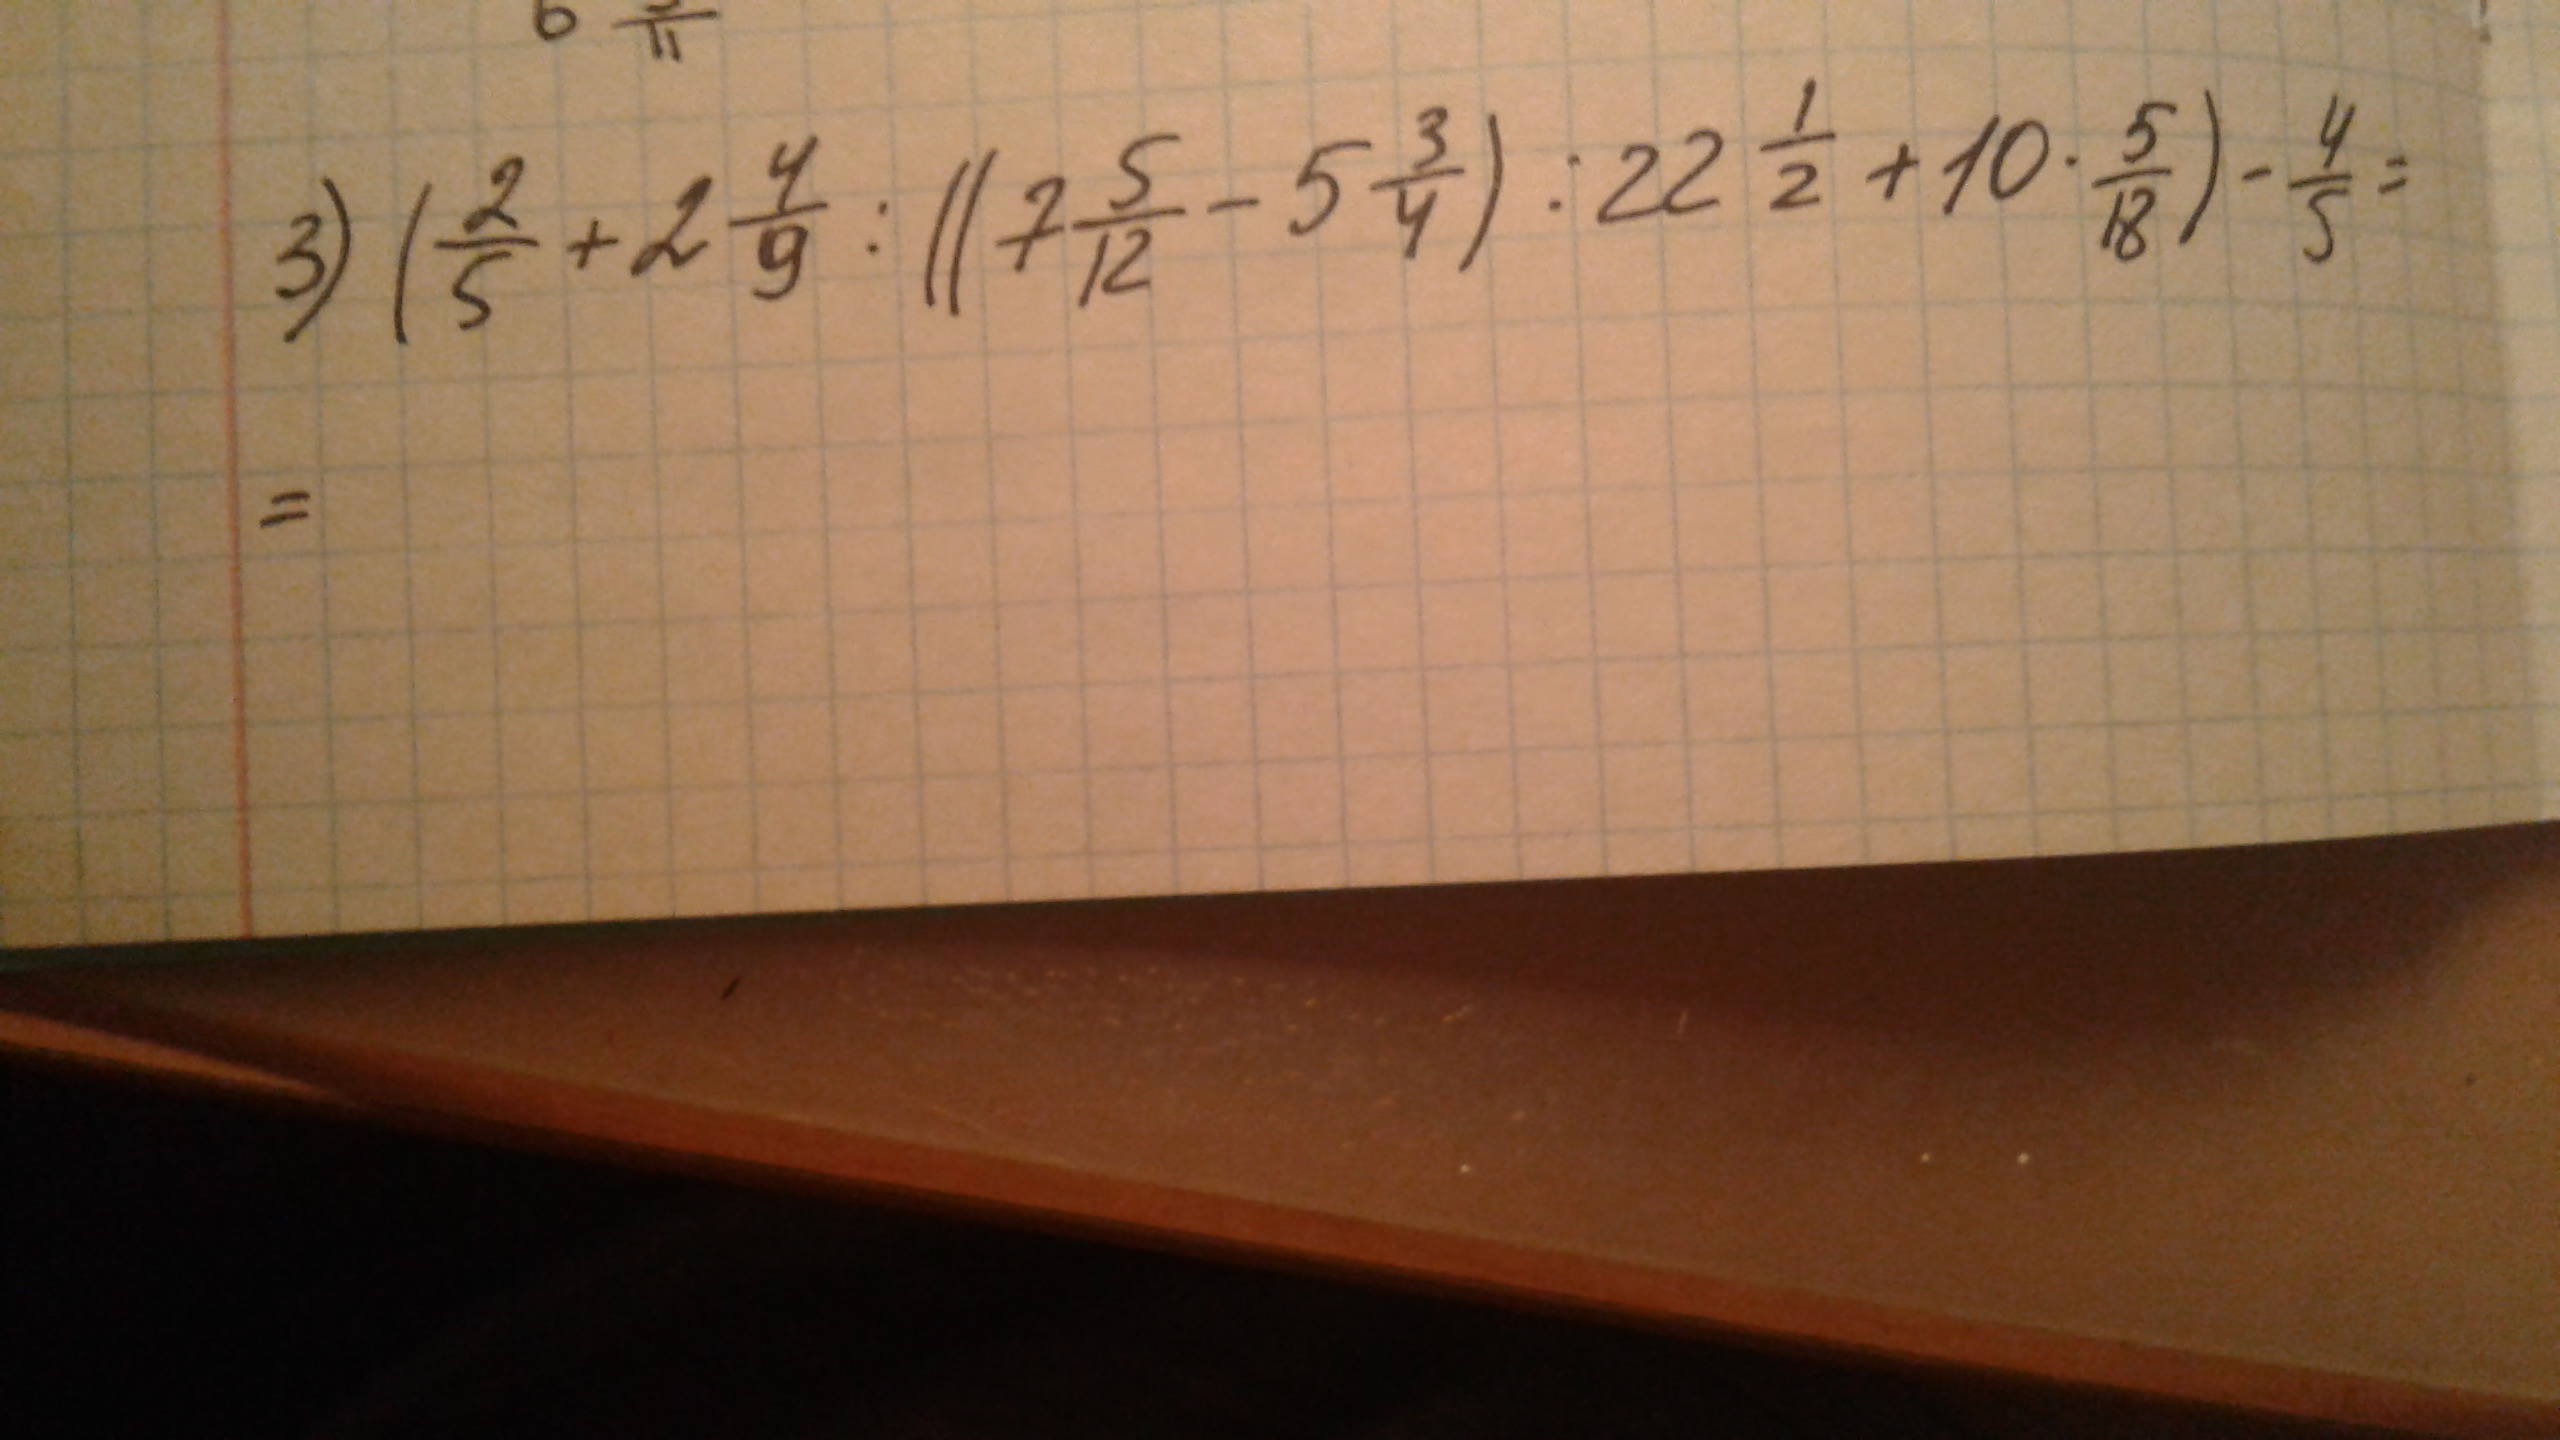 3) (2/5 + 2 4/9 : ((7 5/12 - 5 3/4) : 22 1/2 + 10 · 5/18) - 4/5 =
=